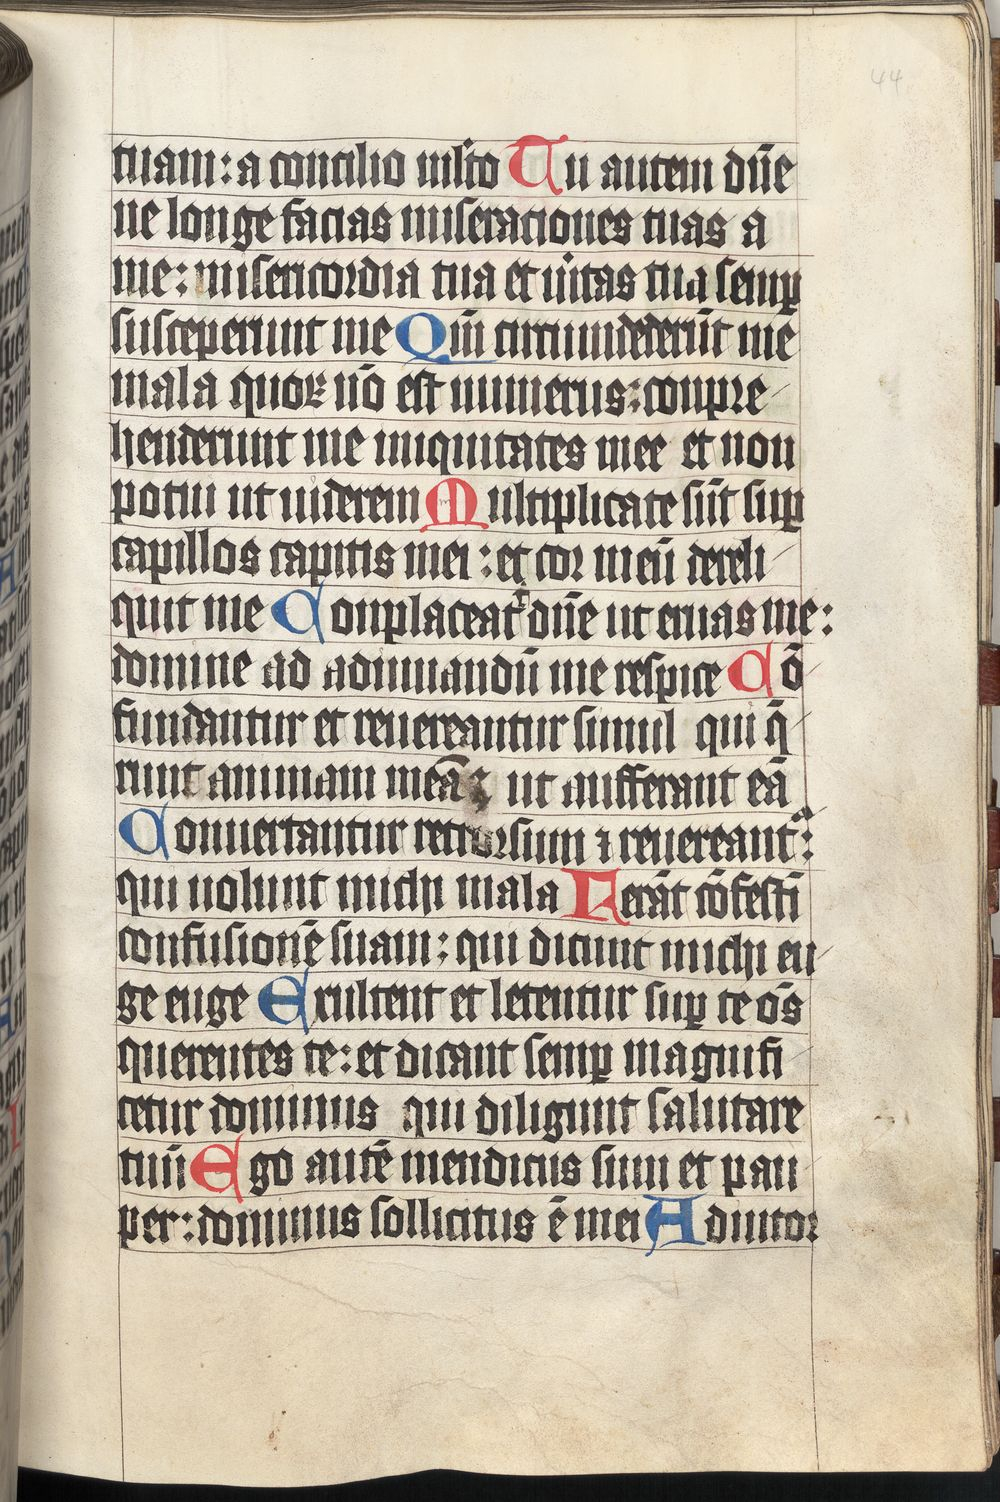 44
tuam : a concilio mlto Tu autem dn̄e
ne longe facias miseraciones tuas a
me : misericordia tua et ūitas tua semꝑ
susceperunt me Qm̄ circumdederūt me
mala quoꝝ nō est numerus : conpre
henderunt me iniquitates mee et non
potui ut uiderem Multiplicate sūt suꝑ
capillos capitis mei : et cor meū dereli
quit me Conplaceat᷑ dn̄e ut eruas me :
domine ad adiuuandū me respice Cō
fundantur et reuereantur simul qui q̄
runt animam meā : ut aufferant eā
Conuertantur retrorsum ⁊ reuereant᷑ :
qui uolunt michi mala Ferāt cōfestī
confusionē suam : qui dicunt michi eu
ge euge Exultent et letentur suꝑ te oēs
querentes te : et dicant semꝑ magnifi
cetur dominus qui diligunt salutare
tuū Ego autē mendicus sum et pau
per : dominus sollicitus ē mei Adiutor